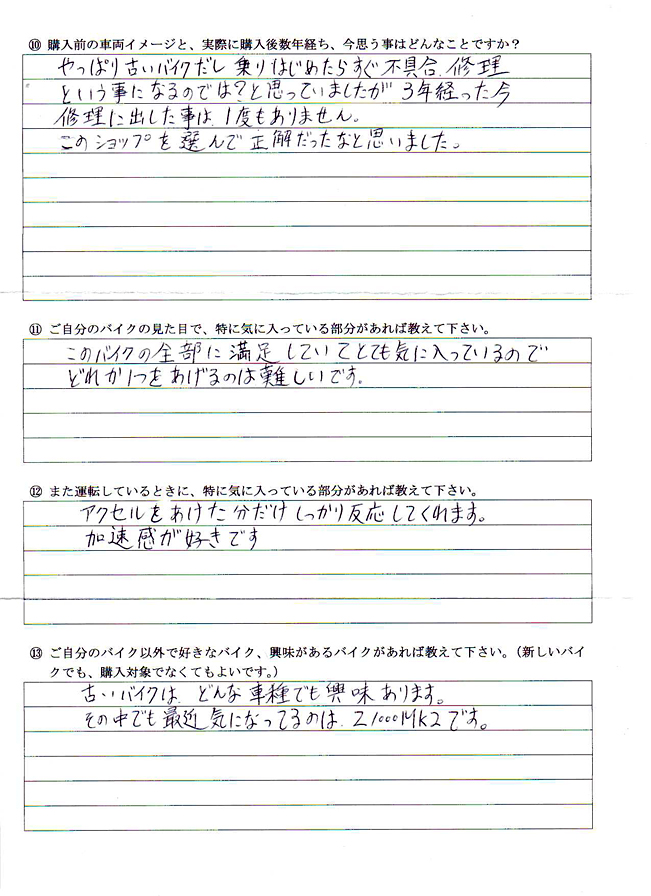 ⑩ 購入前の車両イメージと、実際に購入後数年経ち、今思う事はどんなことですか？
やっぱり古いバイクだし 乗りはじめたらすぐ不具合、修理
という事になるのでは？と思っていましたが 3年経った今
修理に出した事は、1度もありません。
このショップを選んで正解だったなと思いました。
⑪ ご自分のバイクの見た目で、特に気に入っている部分があれば教えて下さい。
このバイクの全部に満足していてとても気に入っているので
どれか1つをあげるのは難しいです。
⑫ また運転しているときに、特に気に入っている部分があれば教えて下さい。
アクセルをあけた分だけしっかり反応してくれます。
加速感が好きです
⑬ ご自分のバイク以外で好きなバイク、興味があるバイクがあれば教えて下さい。（新しいバイ
クでも、購入対象でなくてもよいです。）
古いバイクは、どんな車種でも興味あります。
その中でも最近気になってるのは、Z1000MK2です。